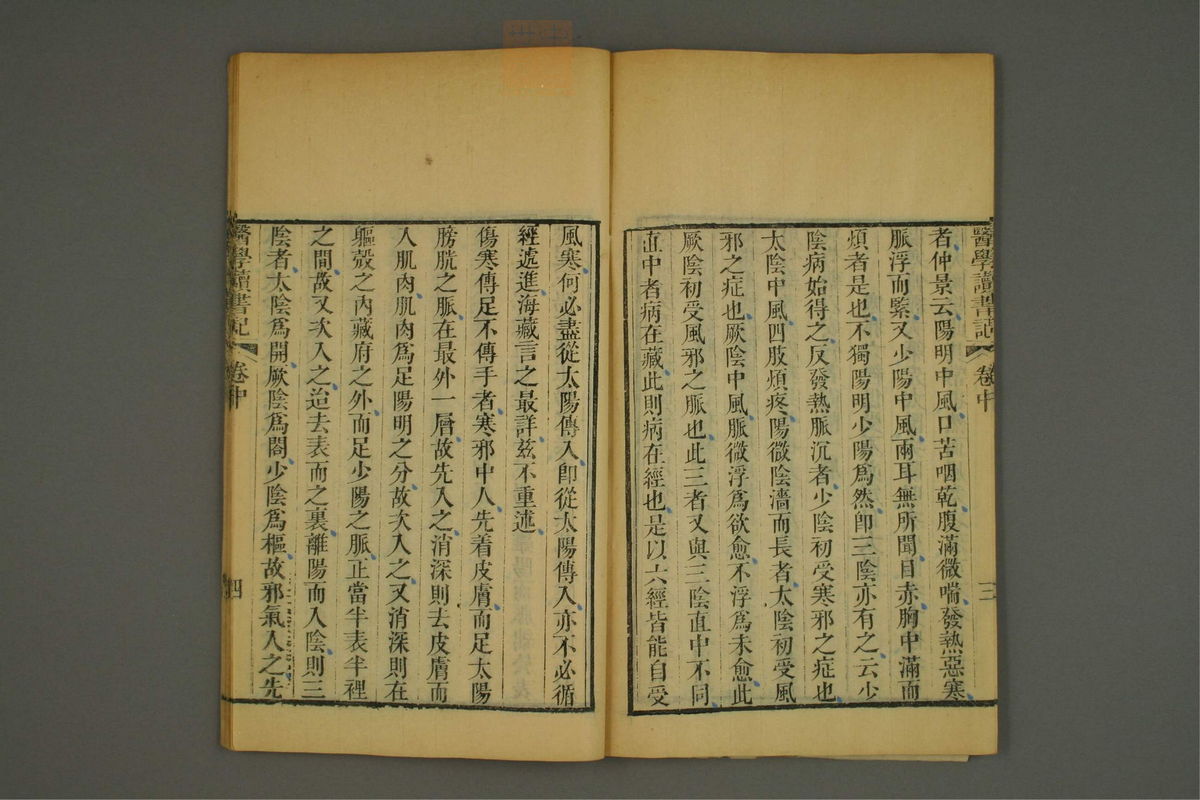 醫學讀書記 卷中 三
者仲景云陽明中風口苦咽乾腹滿微喘發熱惡寒
脈浮而緊又少陽中風兩耳無所聞目赤胸中滿而
煩者是也不獨陽明少陽爲然卽三陰亦有之云少
陰病始得之反發熱脈沉者少陰初受寒邪之症也
太陰中風四肢煩疼陽微陰濇而長者太陰初受風
邪之症也厥陰中風脈微浮爲欲愈不浮爲未愈此
厥陰初受風邪之脈也此三者又與三陰直中不同
直中者病在藏此則病在經也是以六經皆能自受
風寒何必盡從太陽傳入卽從太陽傳入亦不必循
經遞進海藏言之最詳茲不重述
傷寒傳足不傳手者寒邪中人先着皮膚而足太陽
膀胱之脈在最外一層故先入之消深則去皮膚而
入肌肉肌肉爲足陽明之分故次入之又消深則在
軀殼之內藏府之外而足少陽之脈正當半表半裡
之間故又次入之迨去表而之裏離陽而入陰則三
陰者太陰爲開厥陰爲閤少陰爲樞故邪氣入之先
醫學讀書記 卷中 四